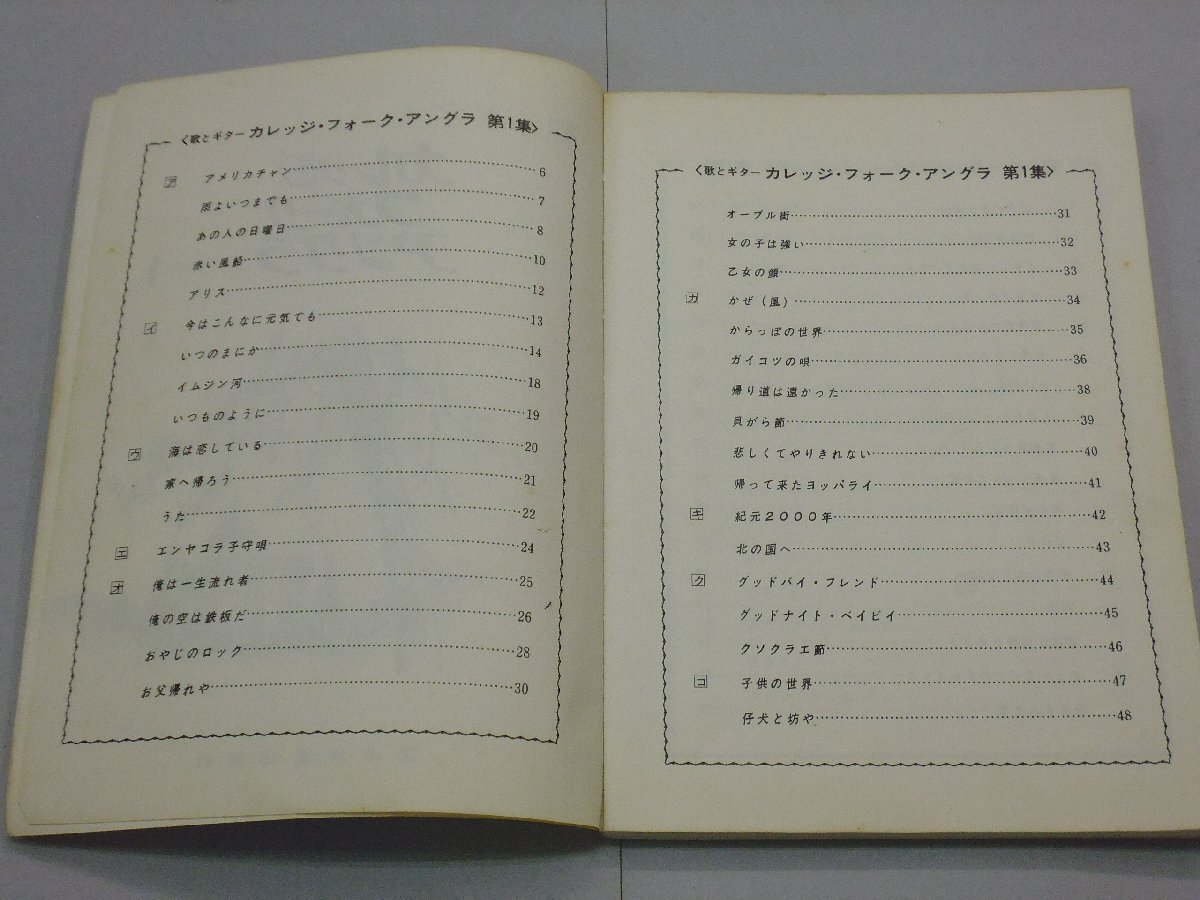 〈歌とギター カレッジ・フォーク・アングラ 第1集〉
ア アメリカチャン 6
雨よいつまでも 7
あの人の日曜日 8
赤い風船 10
アリス 12
イ 今はこんなに元気でも 13
いつのまにか 14
イムジン河 18
いつものように 19
ウ 海は恋している 20
家へ帰ろう 21
うた 22
エ エンヤコラ子守唄 24
オ 俺は一生流れ者 25
俺の空は鉄板だ 26
おやじのロック 28
お父帰れや 30
〈歌とギター カレッジ・フォーク・アングラ 第1集〉
オーブル街 31
女の子は強い 32
乙女の願 33
カ かぜ（風） 34
からっぽの世界 35
ガイコツの唄 36
帰り道は遠かった 38
貝がら節 39
悲しくてやりきれない 40
帰って来たヨッパライ 41
キ 紀元2000年 42
北の国へ 43
ク グッドバイ・フレンド 44
グッドナイト・ベイビイ 45
クソクラエ節 46
コ 子供の世界 47
仔犬と坊や 48